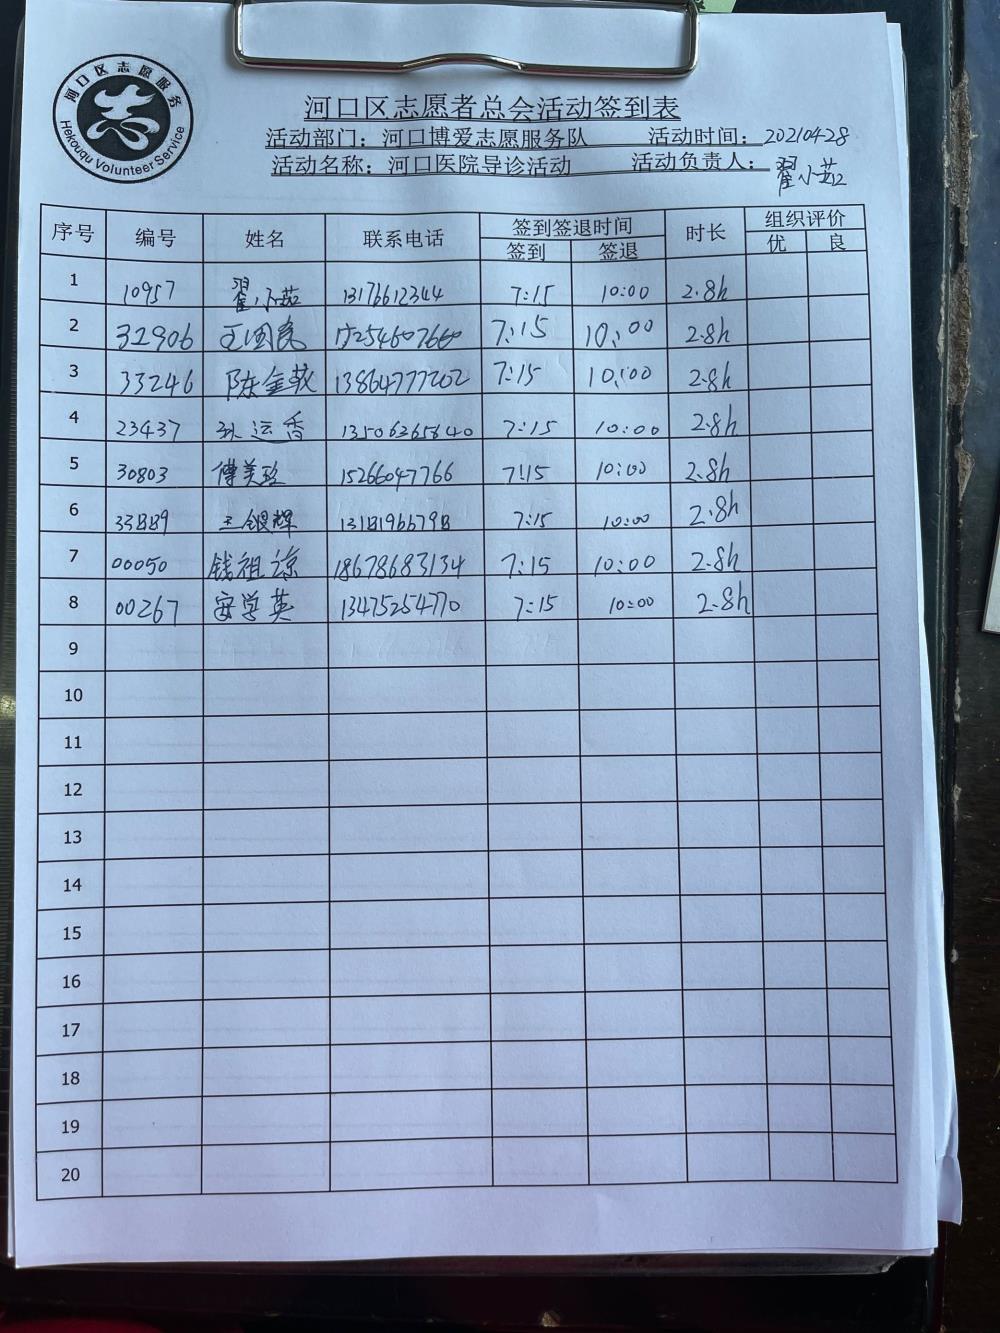 河口区志愿服务
志
Hekouqu Volunteer Service
河口区志愿者总会活动签到表
活动部门：河口博爱志愿服务队 活动时间：20210428
活动名称：河口医院导诊活动 活动负责人：翟小茹
序号 编号 姓名 联系电话 签到签退时间 时长 组织评价
签到 签退 优 良
1 10957 翟小茹 13176612344 7:15 10:00 2.8h
2 32906 王国民 17254607660 7:15 10:00 2.8h
3 33246 陈金 13864777202 7:15 10:00 2.8h
4 23437 孙运香 13506365640 7:15 10:00 2.8h
5 30803 傅美玲 15266047766 7:15 10:00 2.8h
6 33889 王银辉 13181966798 7:15 10:00 2.8h
7 00050 钱祖 18678683134 7:15 10:00 2.8h
8 00267 安学英 13475254770 7:15 10:00 2.8h
9
10
11
12
13
14
15
16
17
18
19
20